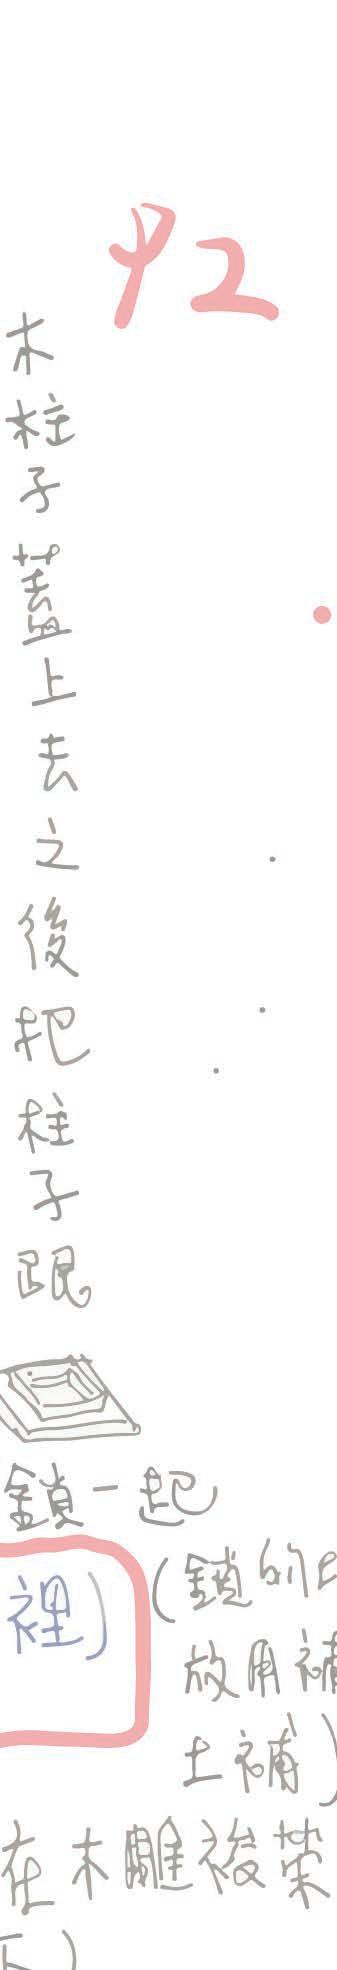 92
木柱子蓋上去之後把柱子跟
鎖一起
裡)
(鎖的
放用補
土補)
在木雕後葉
下)